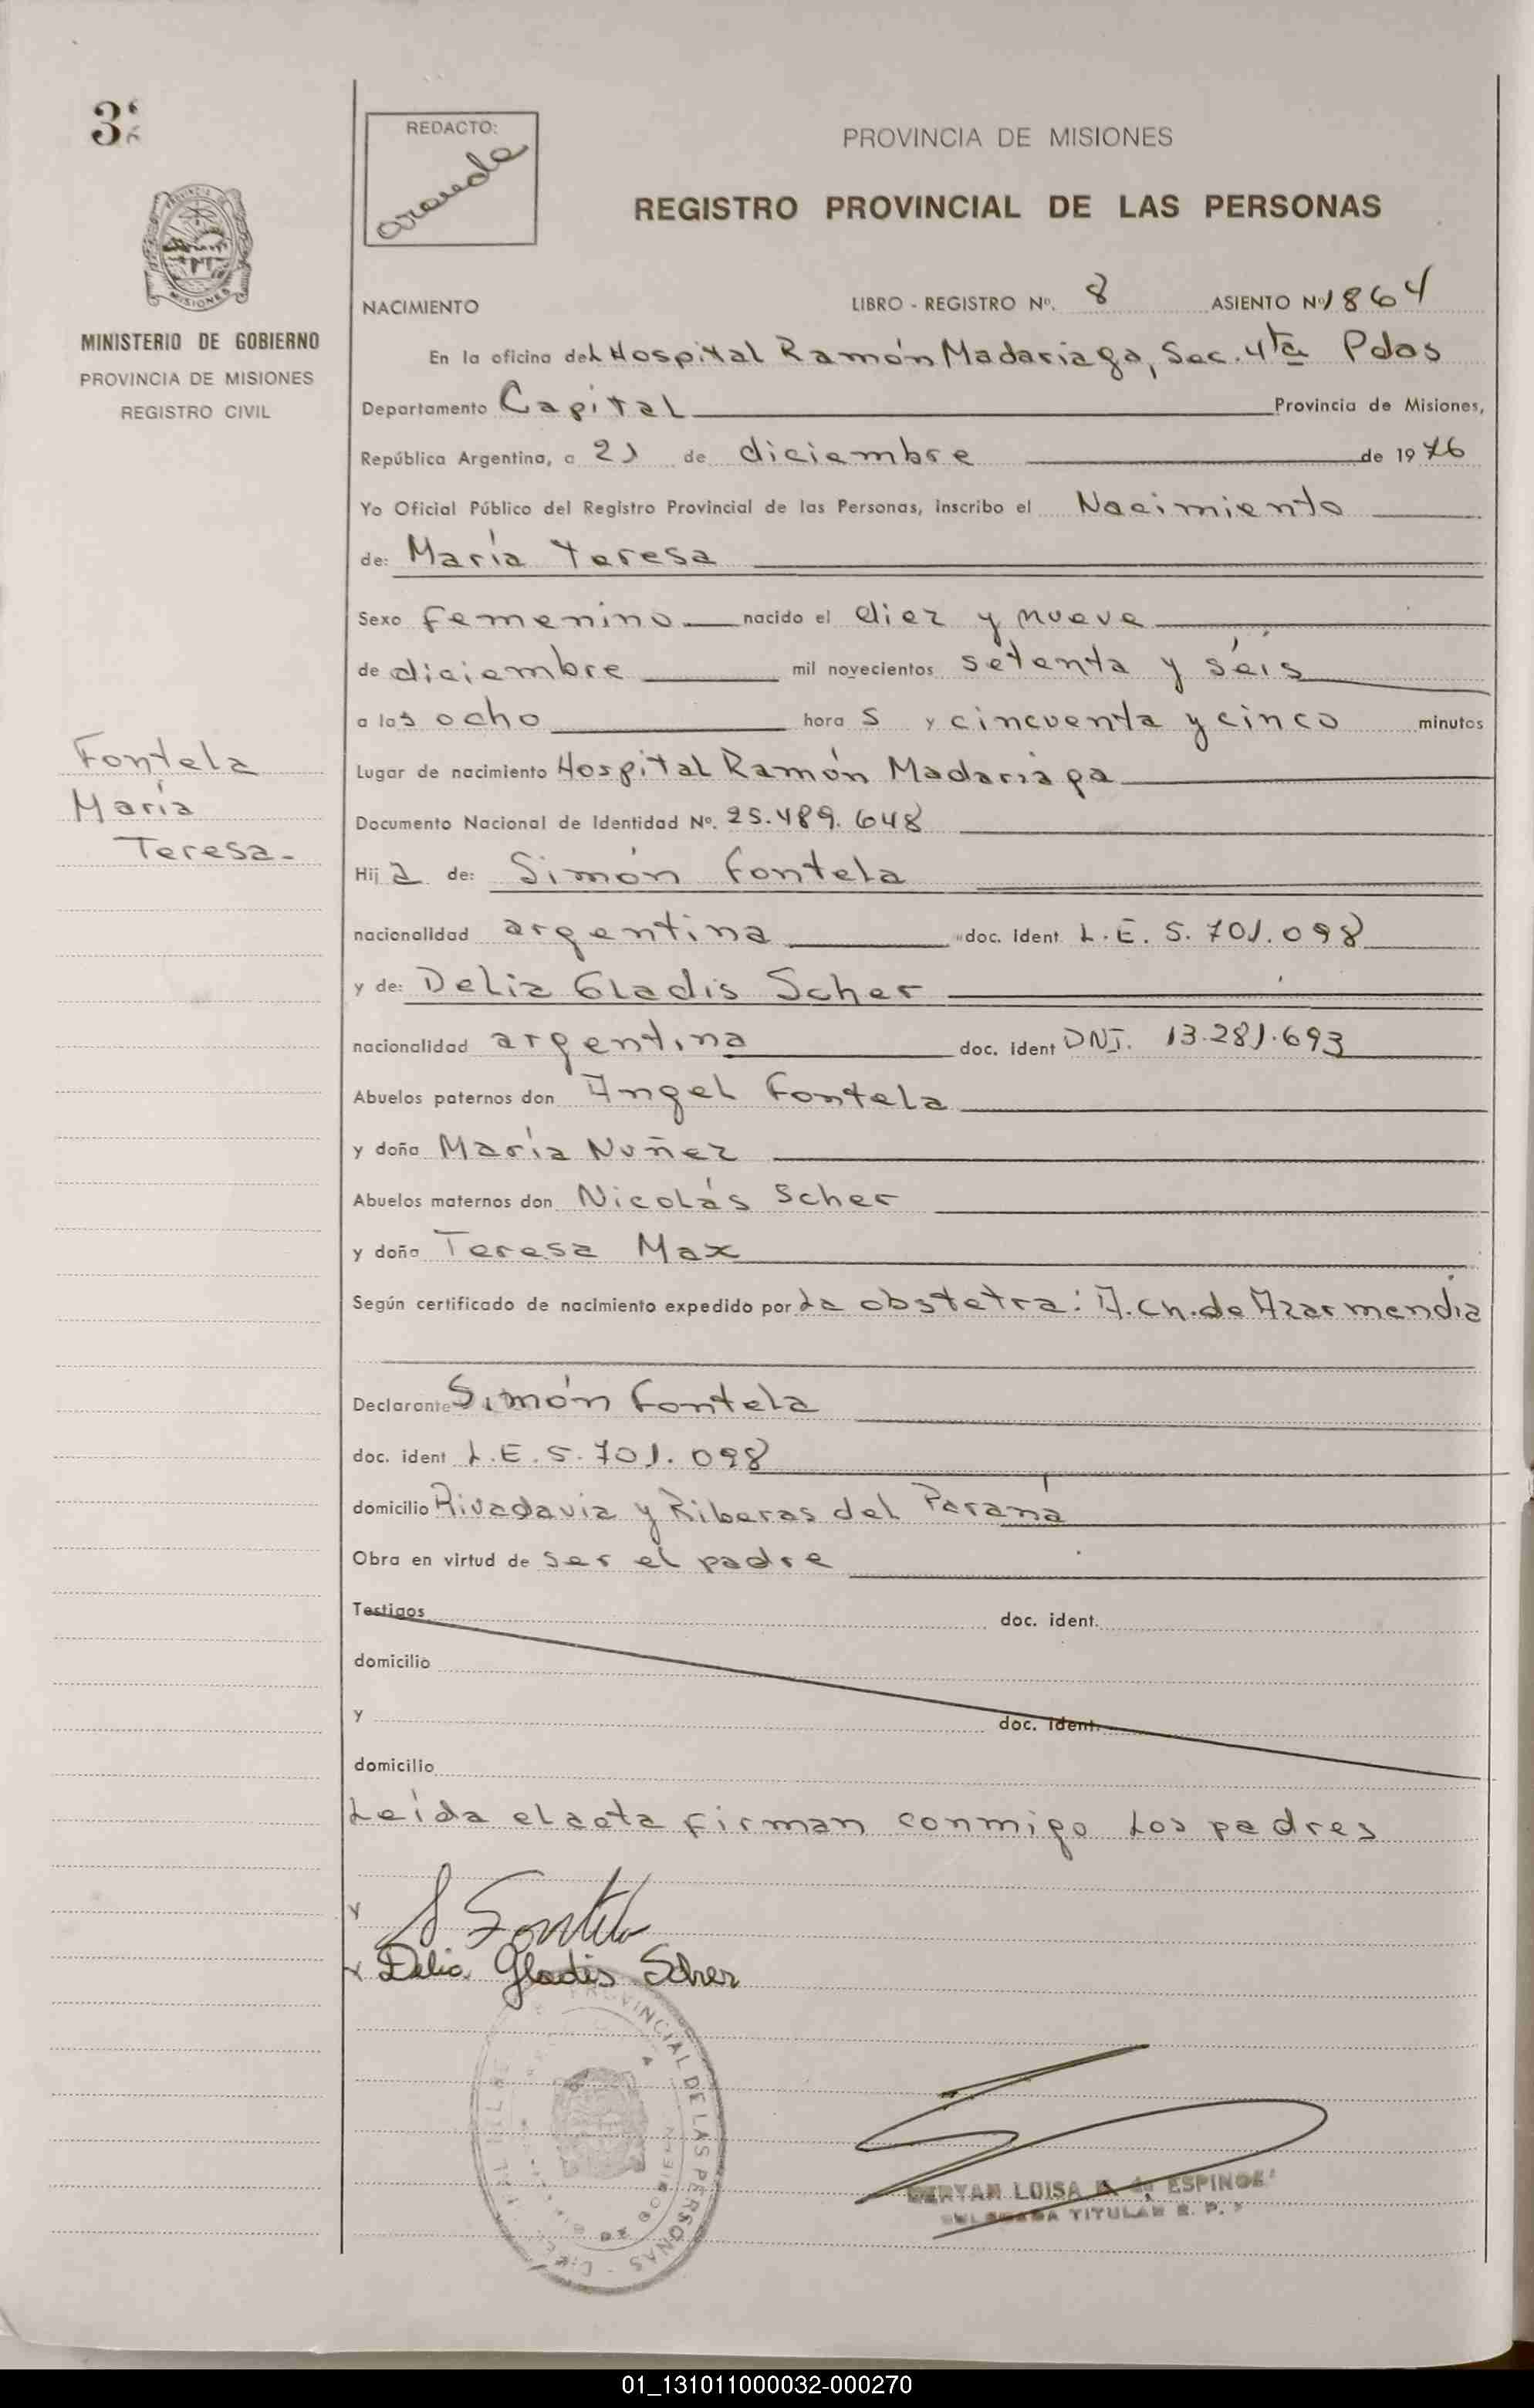 3
REDACTO:
PROVINCIA DE MISIONES
REGISTRO PROVINCIAL DE LAS PERSONAS
MINISTERIO DE GOBIERNO
PROVINCIA DE MISIONES
REGISTRO CIVIL
NACIMIENTO LIBRO - REGISTRO Nº. 8 ASIENTO Nº 1864
En la oficina del Hospital Ramón Madariaga, Sec. 4ta Pdas
Departamento Capital Provincia de Misiones,
República Argentina, a 21 de diciembre de 1976
Yo Oficial Público del Registro Provincial de las Personas, inscribo el Nacimiento
de: María Teresa
Sexo femenino nacido el diez y nueve
de diciembre mil novecientos setenta y séis
a las ocho horas y cincuenta y cinco minutos
Fontela
María
Teresa-
Lugar de nacimiento Hospital Ramón Madariaga
Documento Nacional de Identidad Nº. 25.489.648
Hija de: Simón Fontela
nacionalidad argentina doc. ident L.E. 5.701.098
y de: Delia Gladis Scher
nacionalidad argentina doc. ident DNI. 13.281.693
Abuelos paternos don Angel Fontela
y doña María Nuñez
Abuelos maternos don Nicolás Scher
y doña Teresa Max
Según certificado de nacimiento expedido por la obstetra: A.Ch.de Azarmendia
Declarante Simón Fontela
doc. ident L.E. 5.701.098
domicilio Rivadavia y Riberas del Paraná
Obra en virtud de ser el padre
Testigos doc. ident.
domicilio
y doc. ident.
domicilio
Leída el acta firman conmigo los padres
S Fontela
Delia Gladis Scher
PROVINCIAL DE LAS PERSONAS
LUISA de ESPINOZA
TITULAR R. P.
01_131011000032-000270